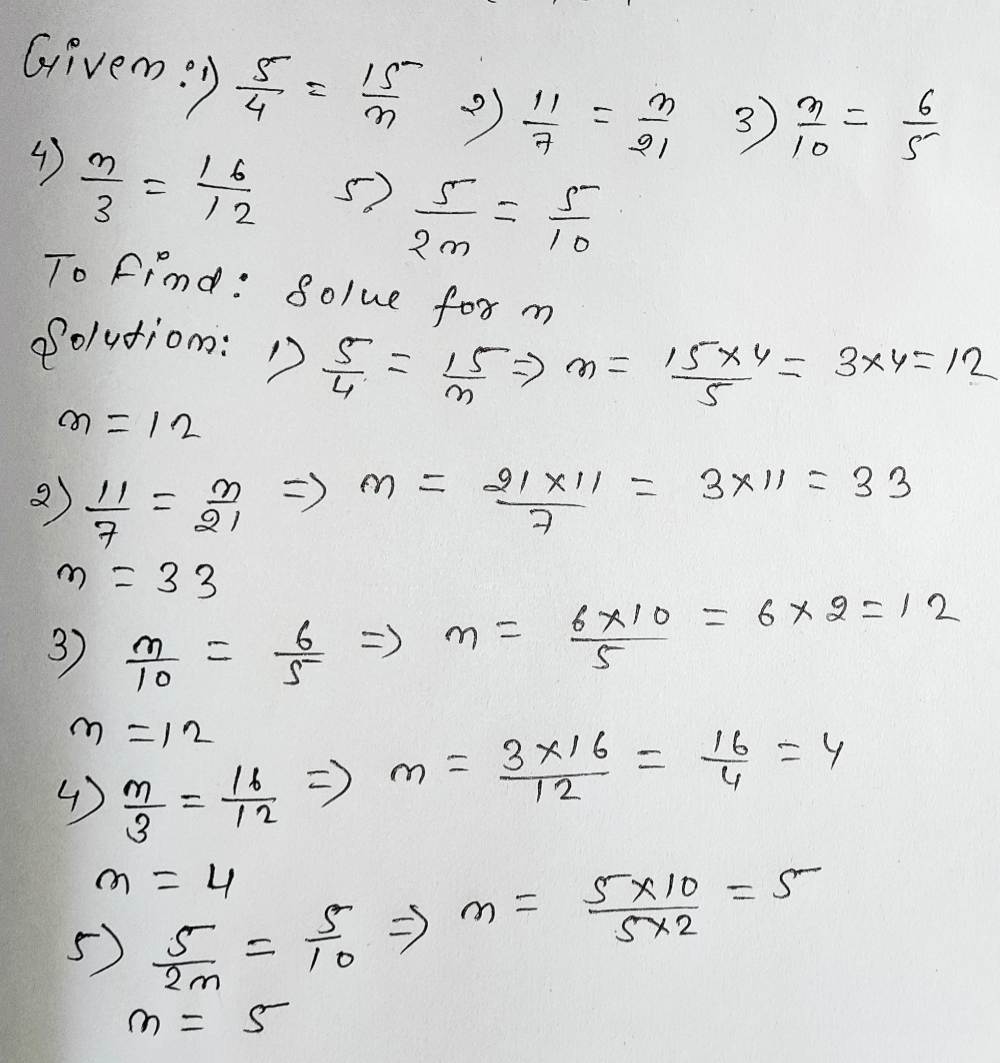 Given: 1) 5/4 = 15/n 2) 11/7 = n/21 3) n/10 = 6/5
4) n/3 = 16/12 5) 5/2n = 5/10
To Find: Solve for n
Solution: 1) 5/4 = 15/n => n = 15×4/5 = 3×4 = 12
n = 12
2) 11/7 = n/21 => n = 21×11/7 = 3×11 = 33
n = 33
3) n/10 = 6/5 => n = 6×10/5 = 6×2 = 12
n = 12
4) n/3 = 16/12 => n = 3×16/12 = 16/4 = 4
n = 4
5) 5/2n = 5/10 => n = 5×10/5×2 = 5
n = 5